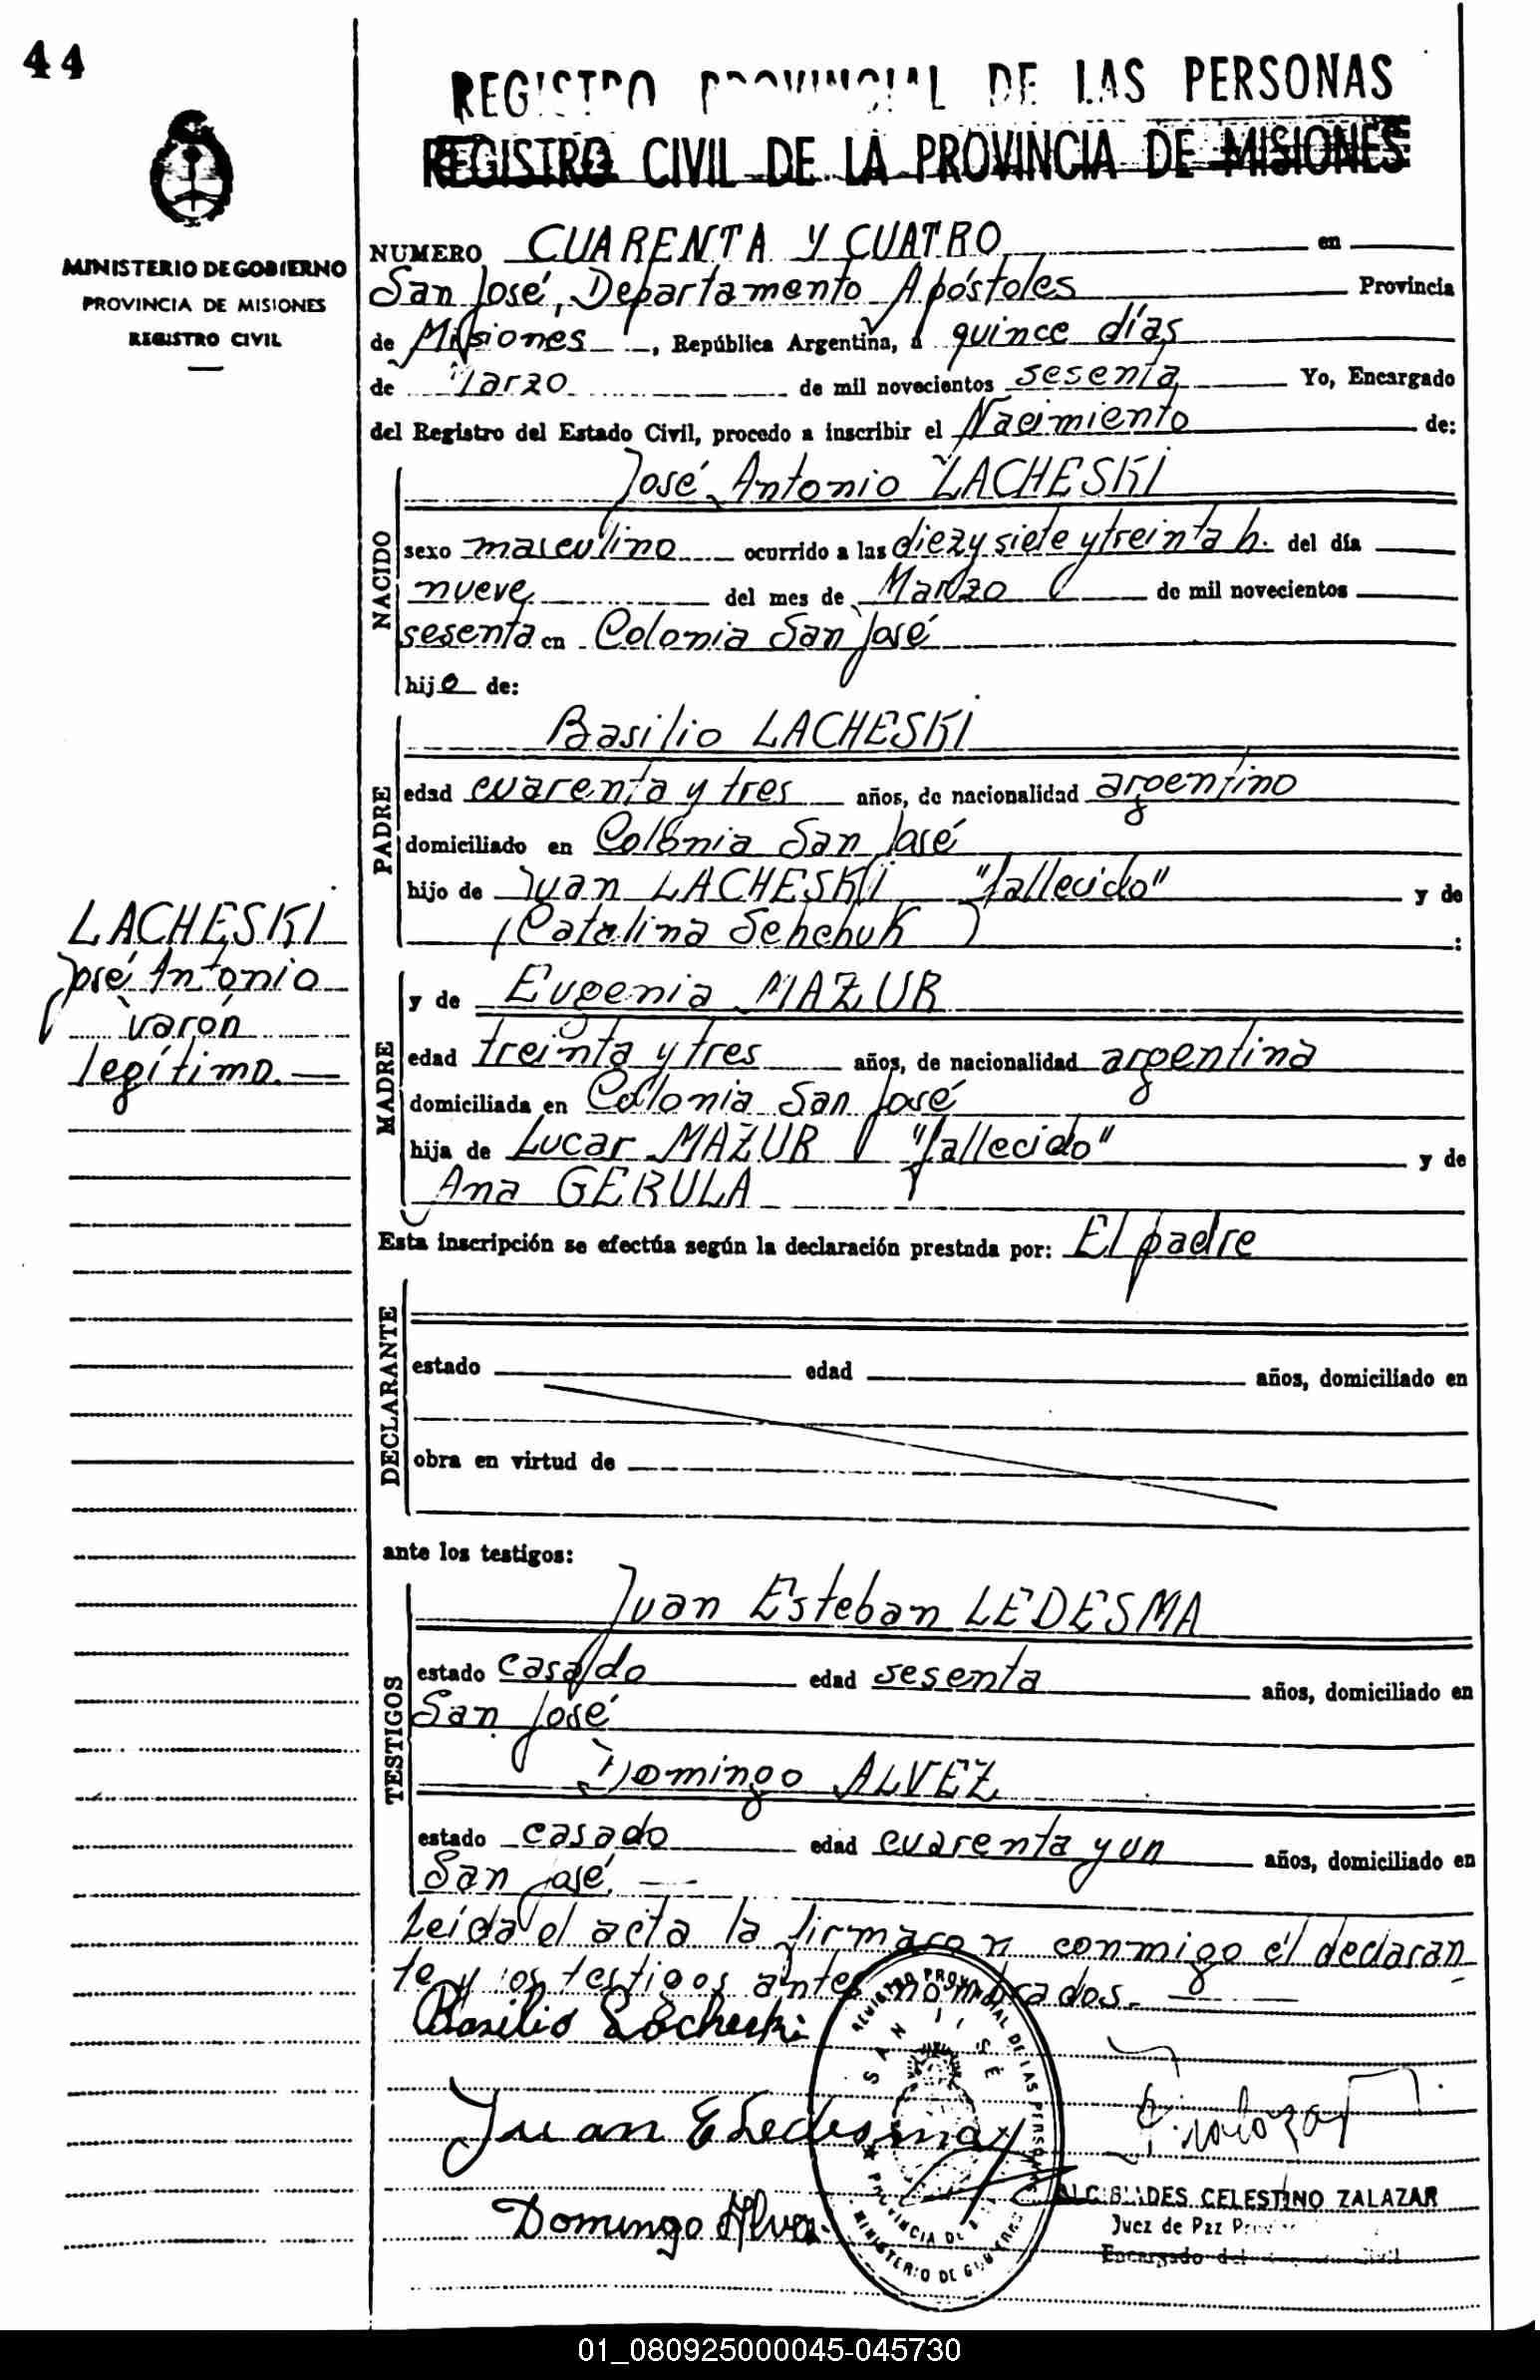 44
REGISTRO PROVINCIAL DE LAS PERSONAS
REGISTRO CIVIL DE LA PROVINCIA DE MISIONES
MINISTERIO DE GOBIERNO
PROVINCIA DE MISIONES
REGISTRO CIVIL
NUMERO CUARENTA Y CUATRO en
San José, Departamento Apóstoles Provincia
de Misiones, República Argentina, a quince días
de Marzo de mil novecientos sesenta Yo, Encargado
del Registro del Estado Civil, procedo a inscribir el Nacimiento de:
NACIDO
José Antonio LACHESKI
sexo masculino ocurrido a las diez y siete y treinta h. del día
nueve del mes de Marzo de mil novecientos
sesenta en Colonia San José
hijo de:
PADRE
Basilio LACHESKI
edad cuarenta y tres años, de nacionalidad argentino
domiciliado en Colonia San José
hijo de Juan LACHESKI "fallecido" y de
(Catalina Sehchuk):
LACHESKI
José Antonio
varón
legítimo.—
MADRE
y de Eugenia MAZUR
edad treinta y tres años, de nacionalidad argentina
domiciliada en Colonia San José
hija de Lucar MAZUR "fallecido" y de
Ana GERULA
Esta inscripción se efectúa según la declaración prestada por: El padre
DECLARANTE
estado edad años, domiciliado en
obra en virtud de
ante los testigos:
TESTIGOS
Juan Esteban LEDESMA
estado casado edad sesenta años, domiciliado en
San José
Domingo ALVEZ
estado casado edad cuarenta y un años, domiciliado en
San José.—
Leída el acta la firmaron conmigo el declaran
te y los testigos antes nombrados.—
Basilio Lacheski
Juan E Ledesma
Domingo Alvez
REGISTRO PROVINCIAL DE LAS PERSONAS
SAN JOSÉ
PROVINCIA DE
MINISTERIO DE GOBIERNO
ALCIBIADES CELESTINO ZALAZAR
Juez de Paz
Encargado del Civil
01_080925000045-045730